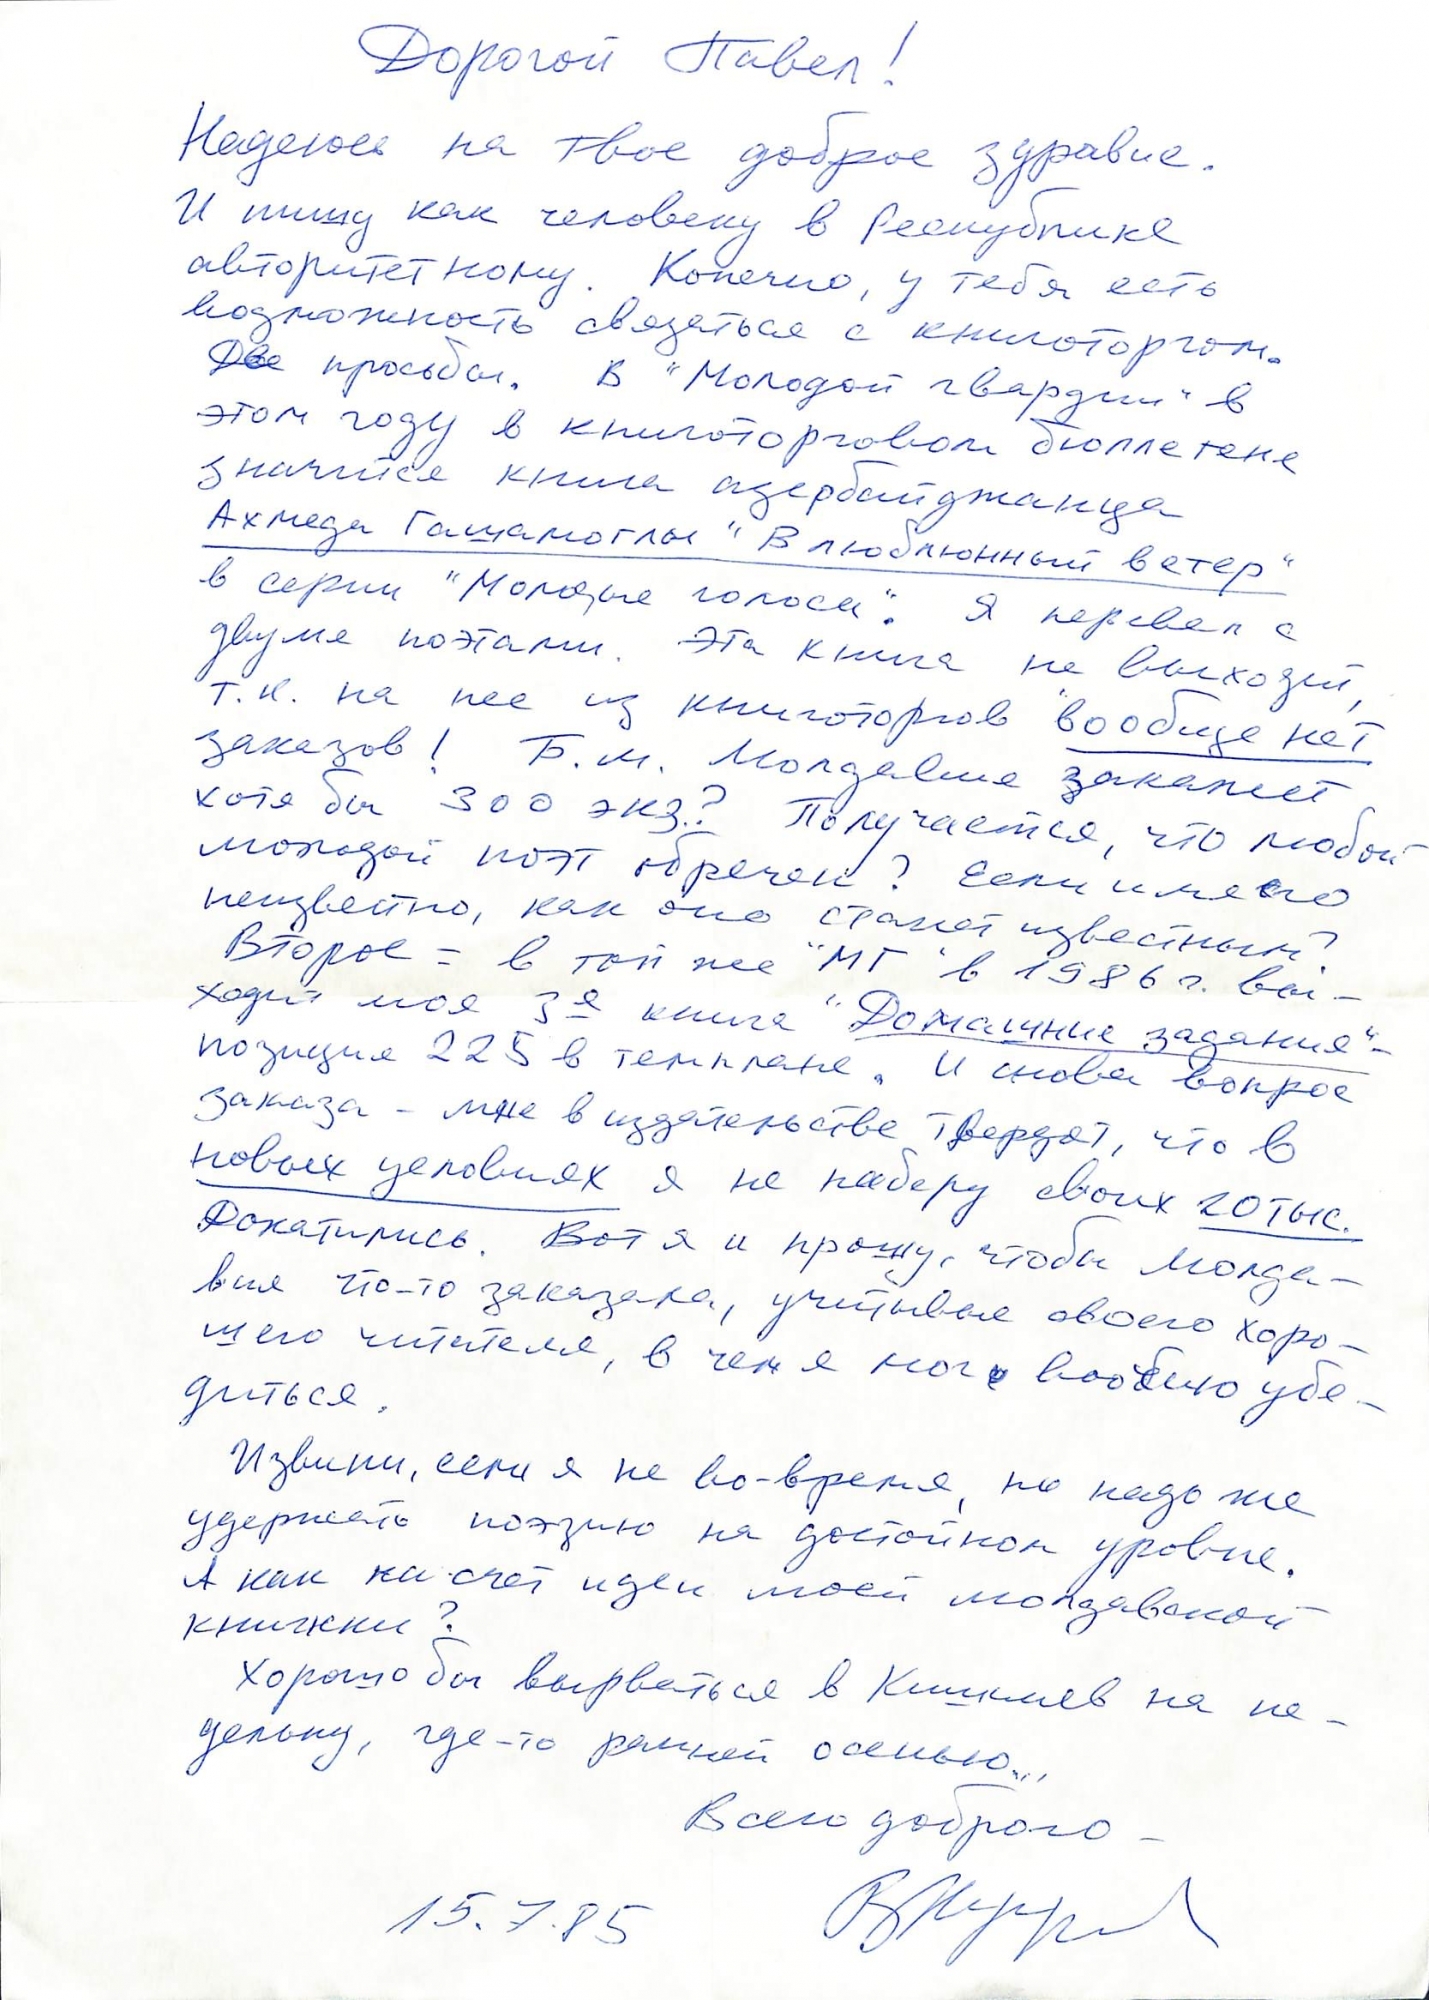 Дорогой Павел!
Надеюсь на твое доброе здравие.
И пишу как человеку в Республике
авторитетному. Конечно, у тебя есть
возможность связаться с книготоргом.
Две просьбы. В "Молодой гвардии" в
этом году в книготорговом бюллетене
значится книга азербайджанца
Ахмеда Гашамоглы "Влюблюнный ветер"
в серии "Молодые голоса". Я перевел с
двумя поэтами. Эта книга не выходит,
т.к. на нее из книготоргов "вообще нет
заказов! Б.м. Молдавия закажет
хотя бы 300 экз.? Получается, что любой
молодой поэт обречен? Если имя его
неизвестно, как оно станет известным?
Второе = в той же "МГ" в 1986 г. вы-
ходит моя 3я книга "Домашние задания"-
позиция 225 в темплане. И снова вопрос
заказа - мне в издательстве твердят, что в
новых условиях я не наберу своих 20 тыс.
Докатились. Вот я и прошу, чтобы Молда-
вия что-то заказала, учитывая своего хоро-
шего читателя, в чем я мог воочию убе-
диться.
Извини, если я не во-время, но надо же
удержать поэзию на достойном уровне.
А как насчет идеи моей молдавской
книжки?
Хорошо бы вырваться в Кишинев на не-
дельку, где-то ранней осенью...
Всего доброго -
15.7.85